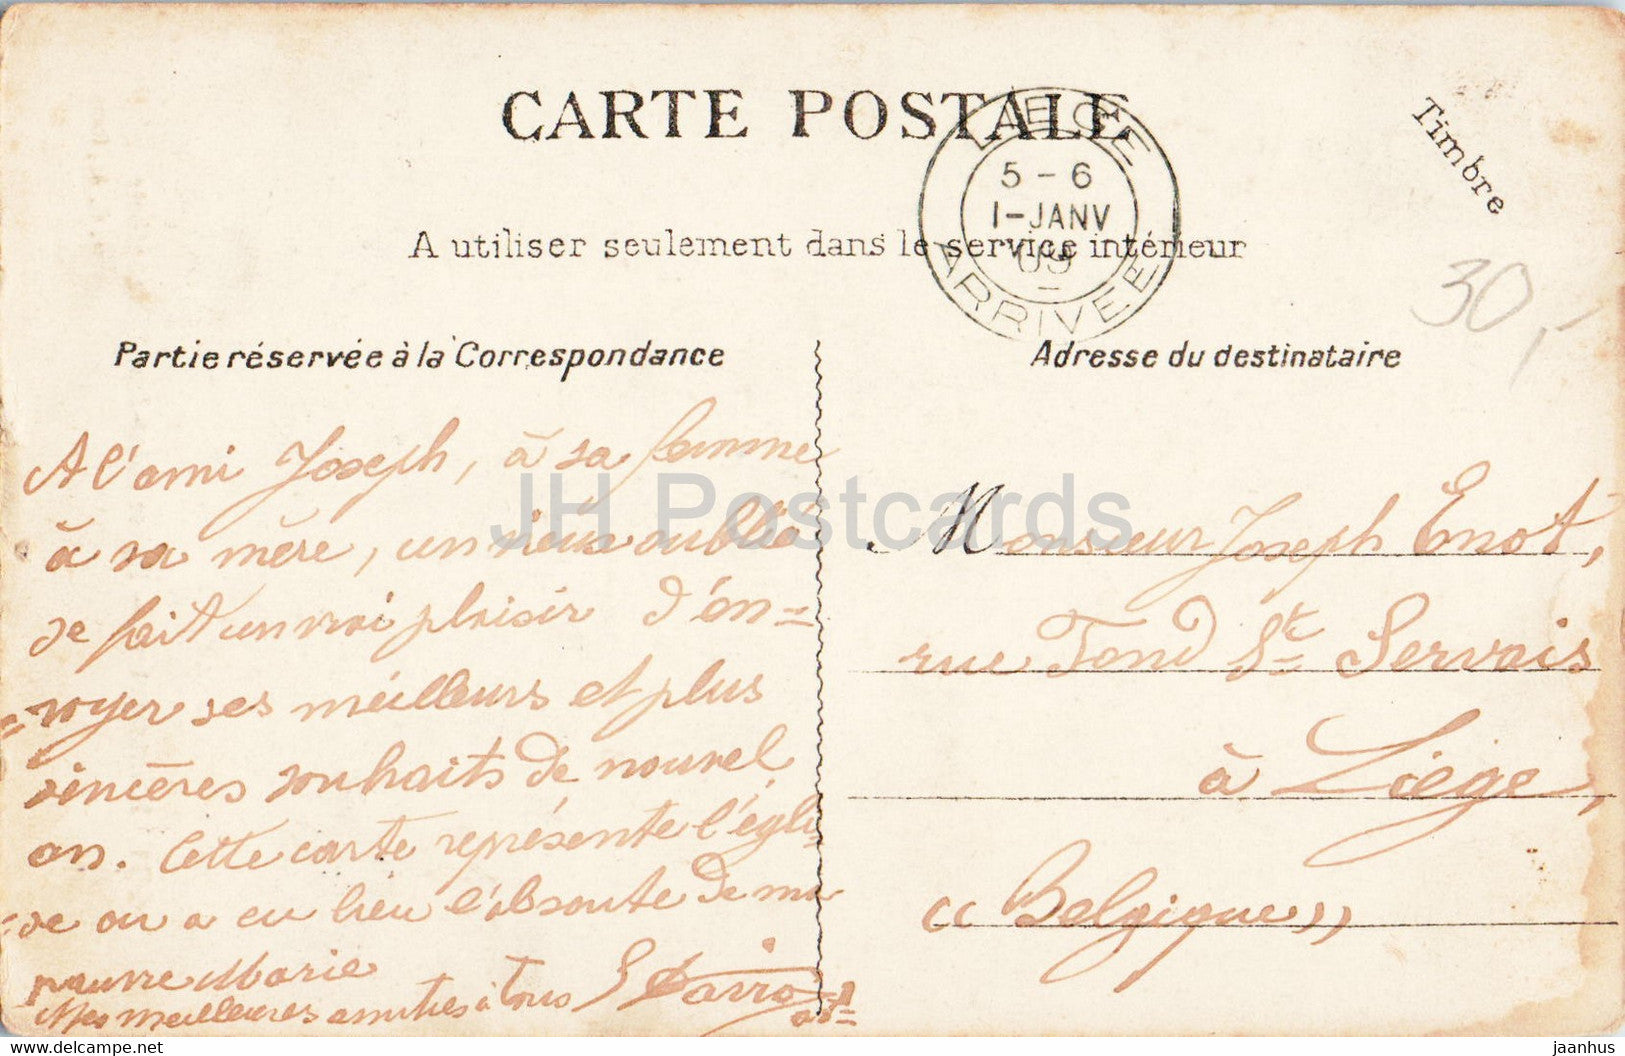 CARTE POSTALE
Timbre
LIEGE
5-6
1-JANV
09
ARRIVEE
A utiliser seulement dans le service intérieur
30,-
Partie réservée à la Correspondance
Adresse du destinataire
A l'ami Joseph, à sa femme
à sa mère, un vieux oublié
se fait un vrai plaisir d'en=
=voyer ses meilleurs et plus
sincères souhaits de nouvel
an. Cette carte représente l'égli
=se où a eu lieu l'absoute de ma
pauvre Marie
Mes meilleures amitiés à tous
Monsieur Joseph Enot,
rue Fond Ste Servais
à Liège,
"Belgique"
JH Postcards
www.delcampe.net
jaanhus